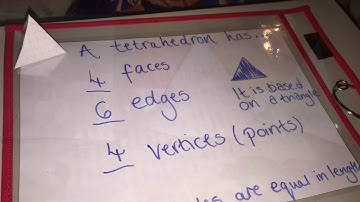 A tetrahedron has...
4 faces
6 edges
It is based
on a triangle
4 vertices (points)
are equal in length